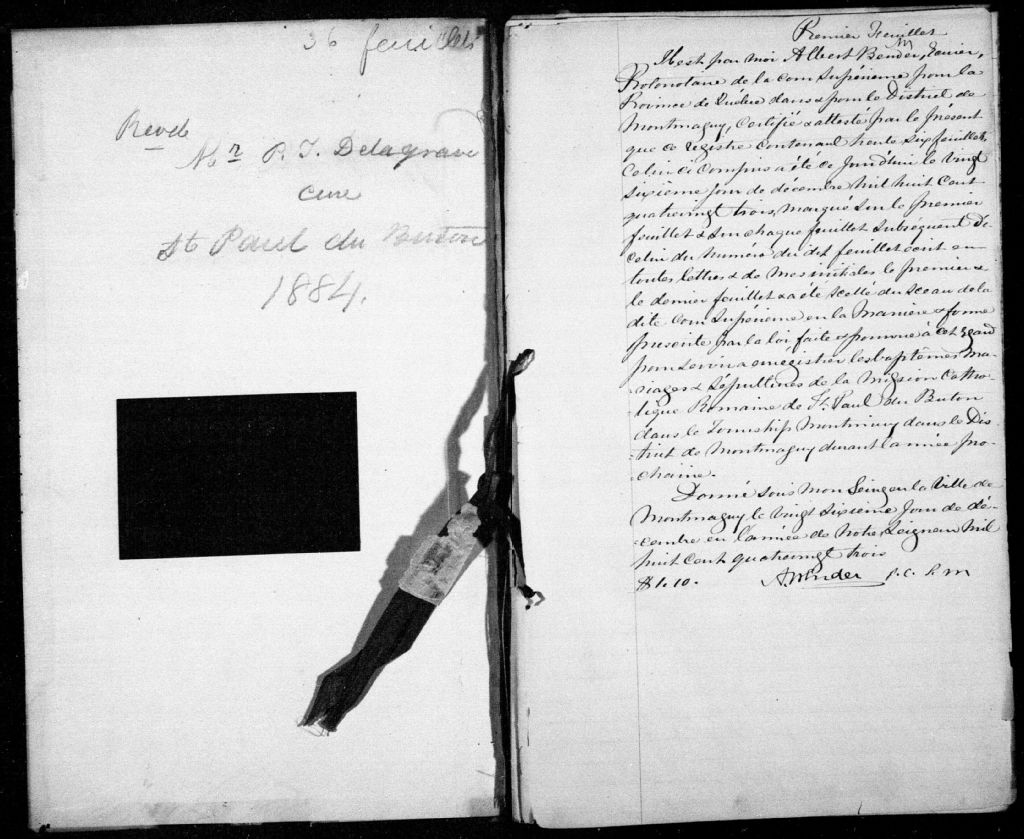 36 feuillets
Revde
Mr P. T. Delagrave
cure
St Paul du Buton
1884.
Premier Feuillet
Il est par moi Albert Bender, Ecuier,
Protonotaire de la cour Supérieure pour la
Province de Québec dans & pour le District de
Montmagny, Certifié & attesté par le présent
que ce régistre contenant trente six feuillets,
celui ci compris a été ce Jourd'hui le vingt
sixième jour de décembre mil huit cent
quatrevingt trois, marqué sur le premier
feuillet & sur chaque feuillet subséquent de
celui du numéro du dit feuillet écrit en
toutes lettres & de mes initiales le premier &
le dernier feuillet & a été scellé du sceau de la
dite cour Supérieure en la manière & forme
prescrite par la loi faite & pourvue à cet égard
pour servir a enrégistrer les baptêmes, ma-
riages & sépultures de la Mission Catho-
lique Romaine de St. Paul du Buton
dans le Township Montminy dans le Dis-
trict de Montmagny durant l'année pro-
chaine.
Donné sous mon Seing en la Ville de
Montmagny le vingt sixième jour de dé-
cembre en l'année de Notre Seigneur mil
huit cent quatrevingt trois
$1.10. A Bender P. C. S. M